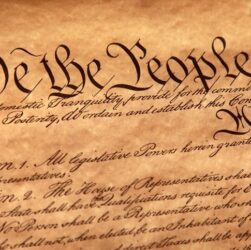 We the People
domestic Tranquility, provide for the comm
Posterity, do ordain and establish this C
1. All legislative Powers herein grante
2. The House of Representatives shal
State shall have Qualifications requisite for
No Person shall be a Representative who s
shall not, when elected, be an Inhabitant